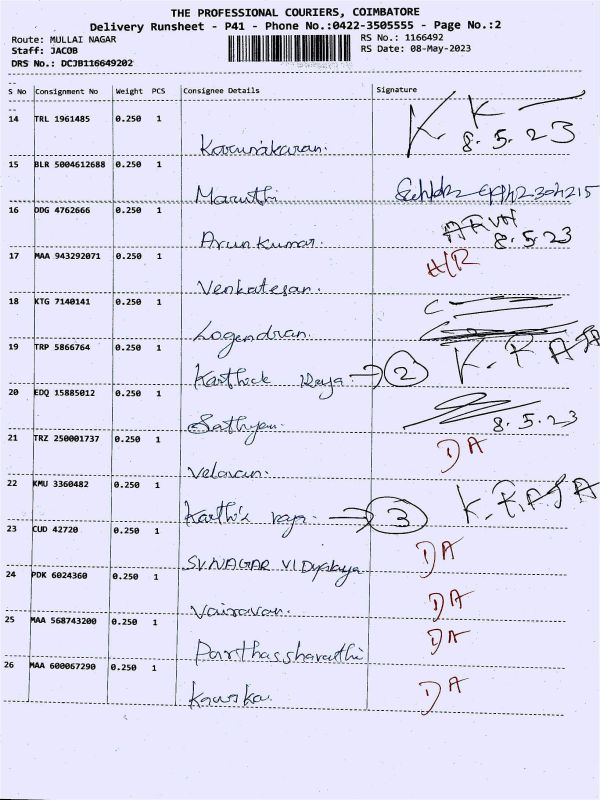 THE PROFESSIONAL COURIERS, COIMBATORE
Delivery Runsheet - P41 - Phone No.:0422-3505555 - Page No.:2
Route: MULLAI NAGAR RS No.: 1166492
Staff: JACOB RS Date: 08-May-2023
DRS No.: DCJB116649202
S No Consignment No Weight PCS Consignee Details Signature
14 TRL 1961485 0.250 1
Karunakaran. K. K 8.5.23
15 BLR 5004612688 0.250 1
Maruthi
16 DDG 4762666 0.250 1
Arun Kumar. 8.5.23
17 MAA 943292071 0.250 1
Venkatesan.
18 KTG 7140141 0.250 1
Logendran.
19 TRP 5866764 0.250 1
Karthick Raja → 2 K. RAJA
20 EDQ 15885012 0.250 1
Sathyan. 8.5.23
21 TRZ 250001737 0.250 1 DA
22 KMU 3360482 0.250 1
Karthik raja → 3 K. RAJA
23 CUD 42720 0.250 1
SV.NAGAR DA
24 PDK 6024360 0.250 1
Vairavan. DA
25 MAA 568743200 0.250 1 DA
26 MAA 600067290 0.250 1 DA